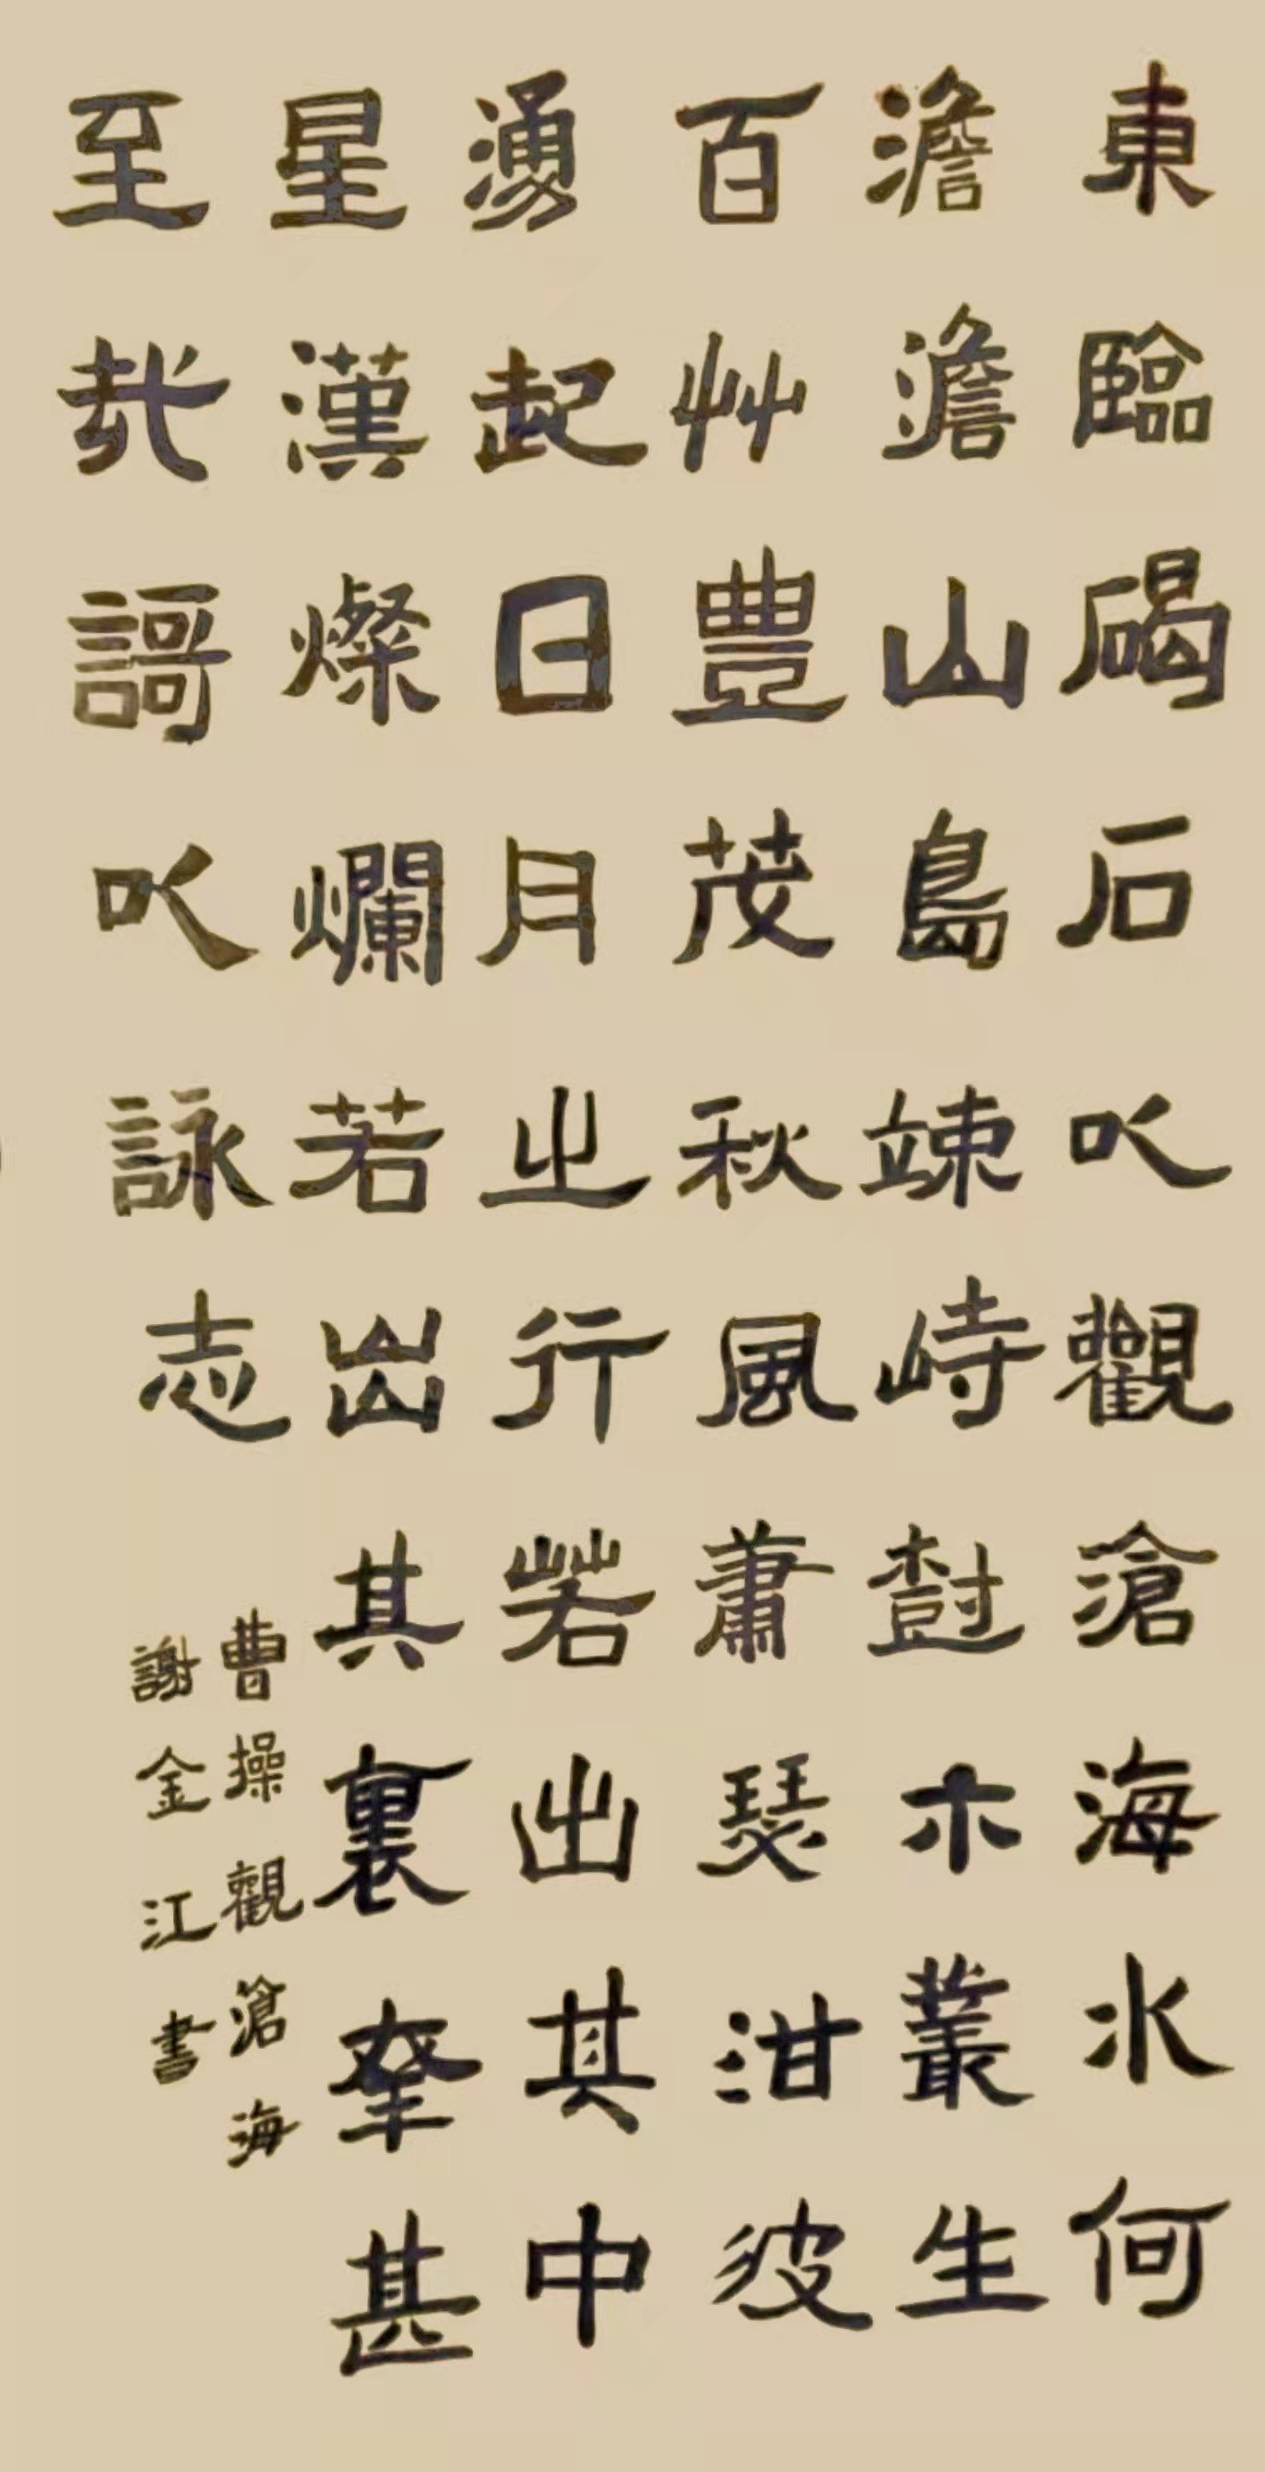 東臨碣石以觀滄海水何
澹澹山島竦峙樹木叢生
百艸豊茂秋風蕭瑟洪波
湧起日月之行若出其中
星漢燦爛若出其裏幸甚
至哉謌以詠志
曹操觀滄海
謝金江書